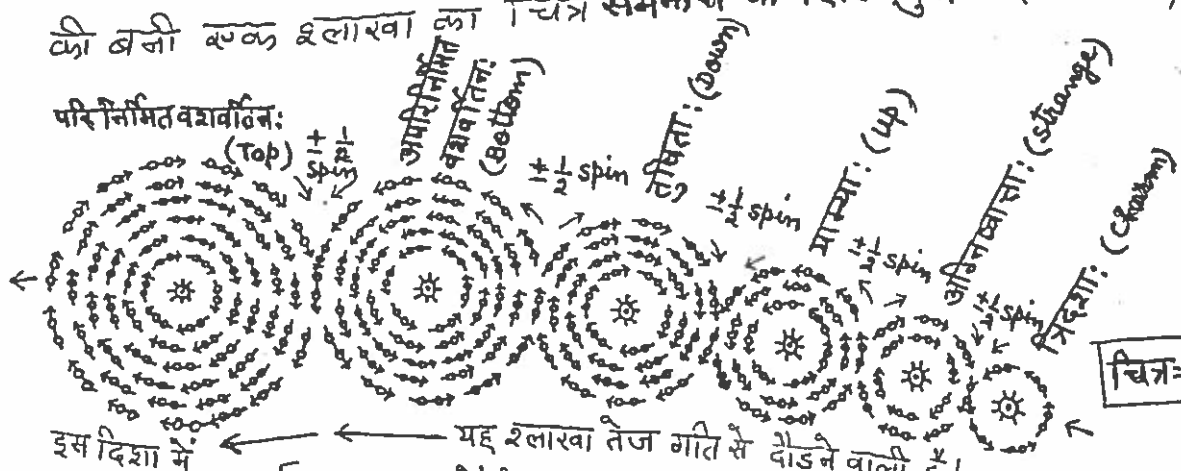 की बनी एक श्लाखा का चित्र समझने के लिए
परिनिर्मितवशवर्तिन:
(Top)
± 1/2
spin
अपरिनिर्मित
वशवर्तिन:
(Bottom)
± 1/2 spin
तुषिता: (Down)
± 1/2 spin
याम्या: (Up)
± 1/2 spin
अग्निष्वात्ता: (Strange)
± 1/2 spin
त्रिदशा: (Charm)
चित्र=
इस दिशा में
यह श्लाखा तेज गति से दौडने वाली है।